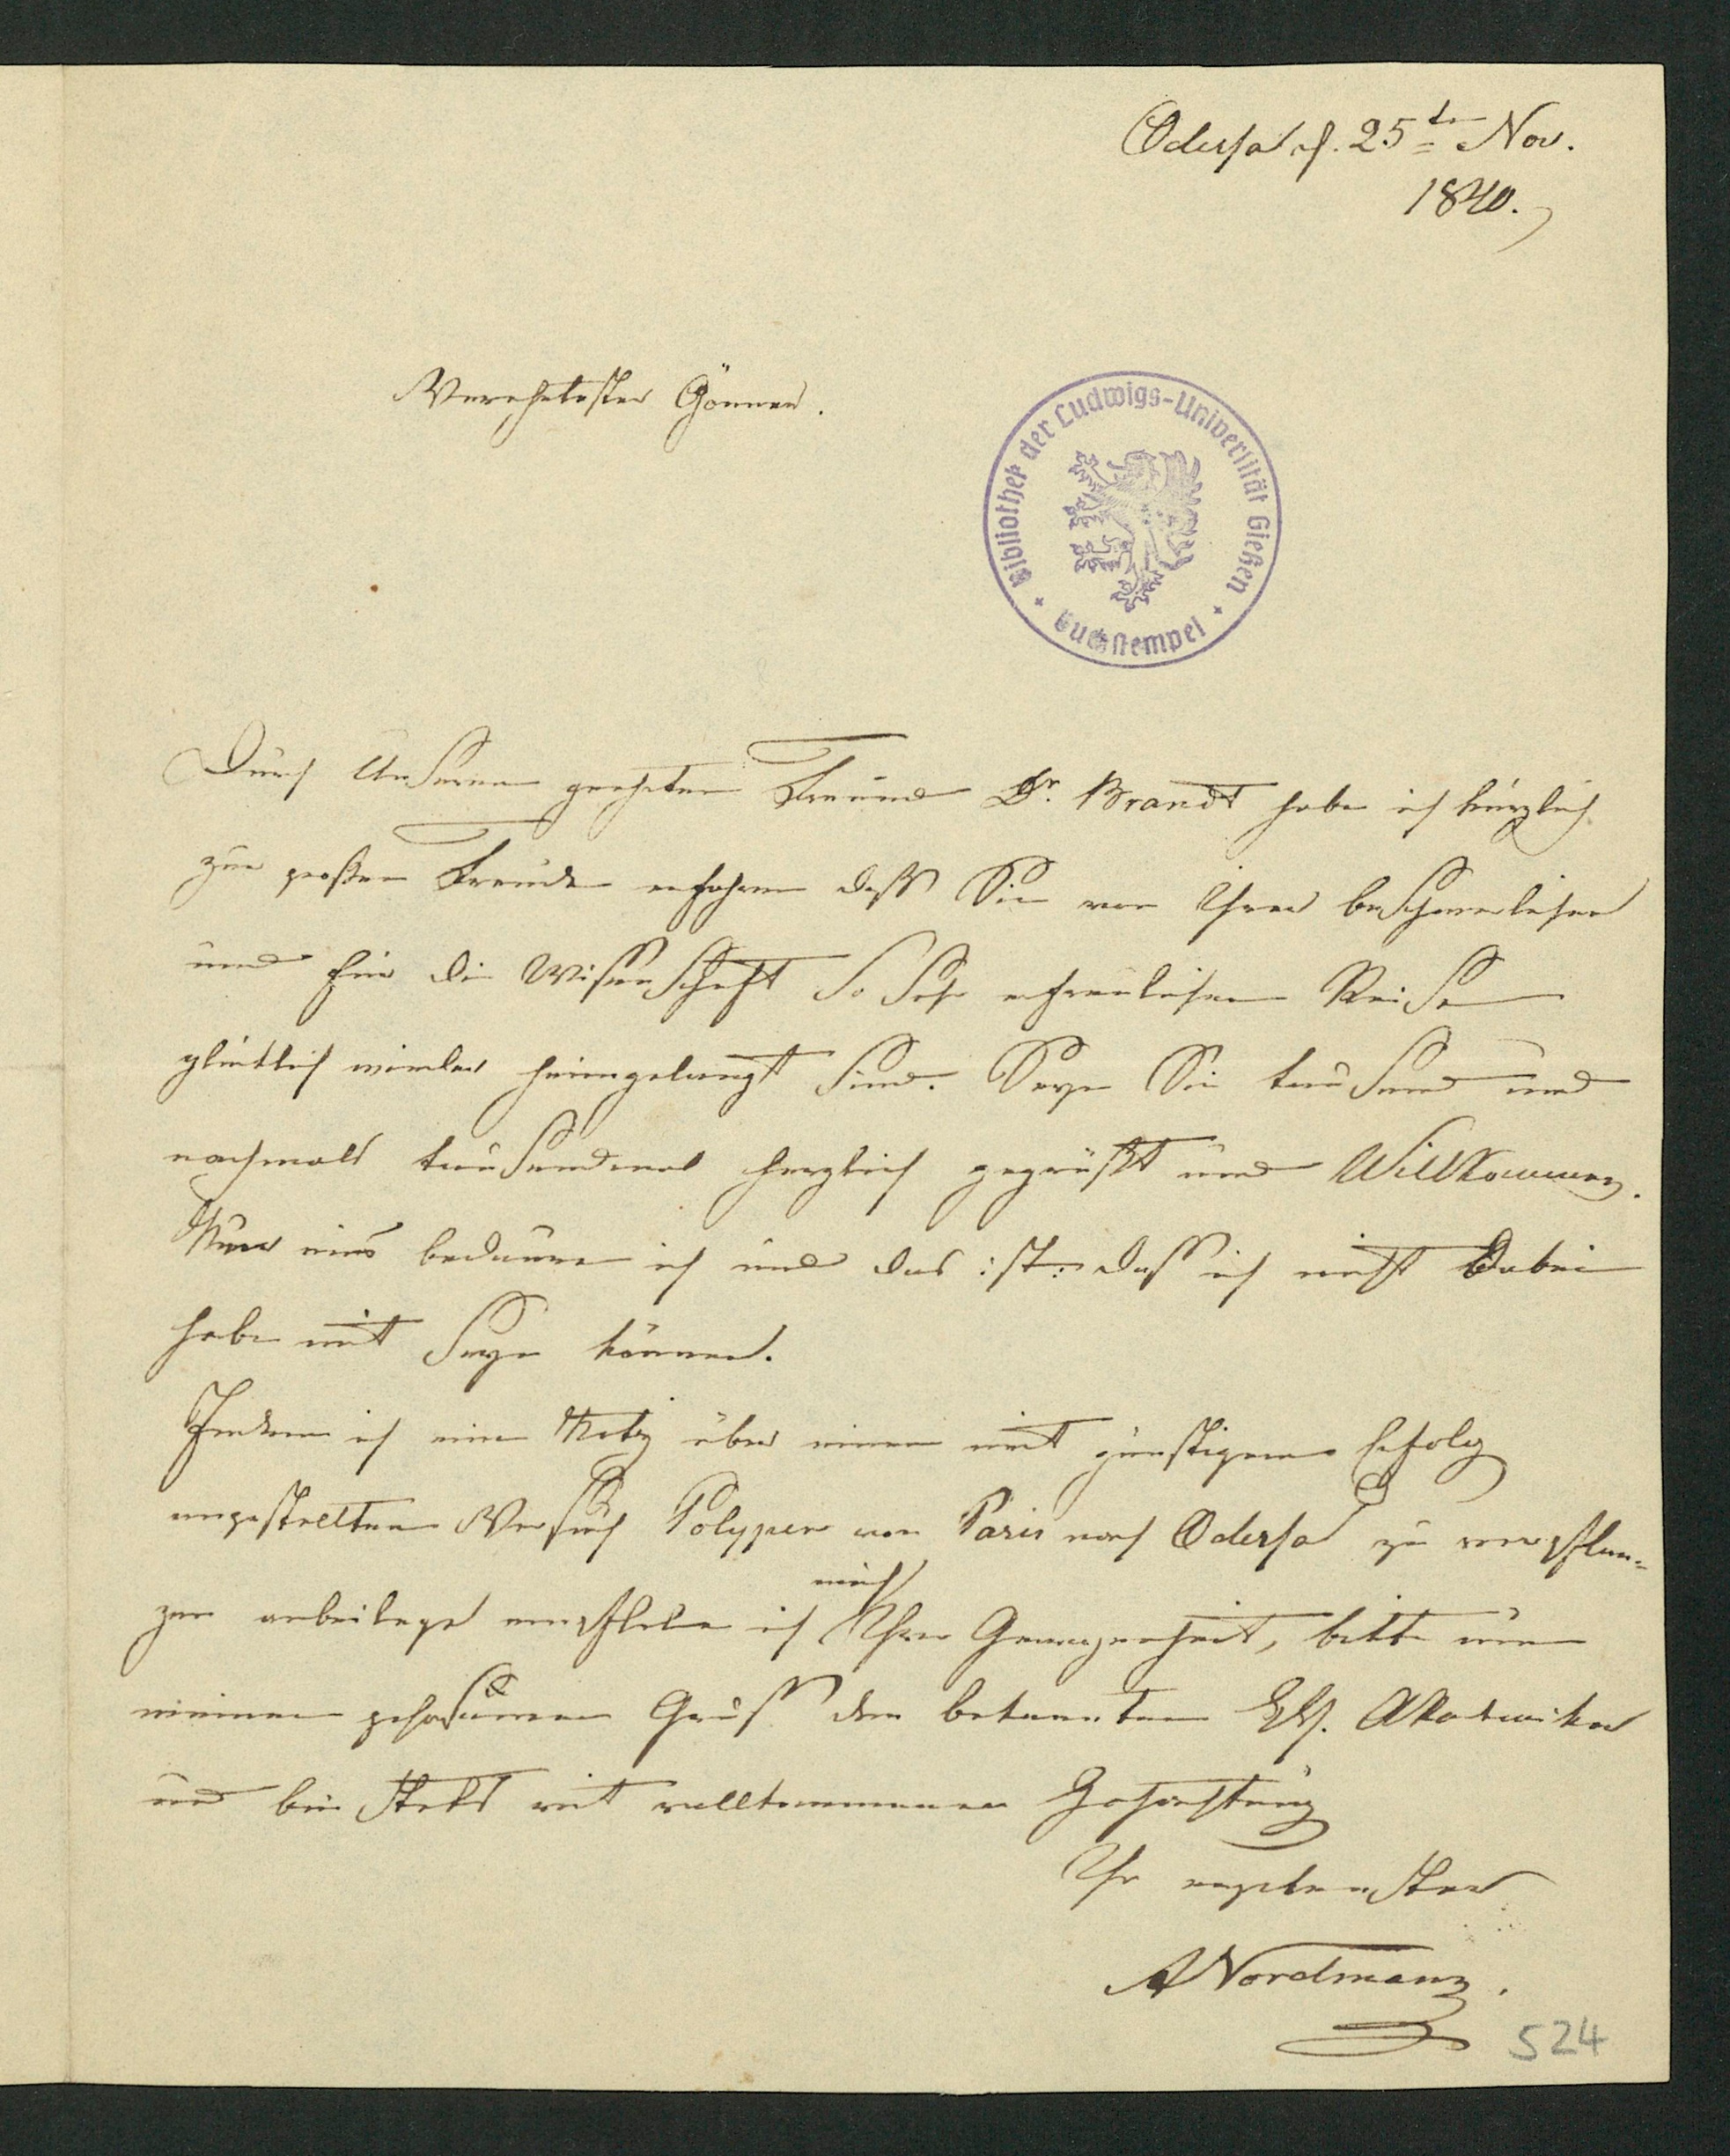 Odessa d. 25ten Nov.
1840.
Verehrtester Gönner.
Bibliothek der Ludwigs-Universität Gießen
Buchstempel
Durch Unseren geehrten Freund Dr. Brandt habe ich kürzlich
zur großen Freude erfahren daß Sie von Ihrer beschwerlichen
und für die Wissenschaft so sehr erfreulichen Reise
glücklich wieder heimgelangt sind. Seyn Sie tausend und
nochmals tausendmal herzlich gegrüßt und Willkommen.
Nur eins bedaure ich und das ist: daß ich nicht Dabei
habe mit seyn können.
Indem ich eine Notiz über einen mit günstigem Erfolg
angestellten Versuch Polypen von Paris nach Odessa zu verpflan-
mich
zen anbeilege empfehle ich Ihrer Gewogenheit, bitte um
meinen gehorsamen Gruß den bekannten Akademiker
und bin stets mit vollkommener Hochachtung
Ihr ergebenster
A Nordmann.
524